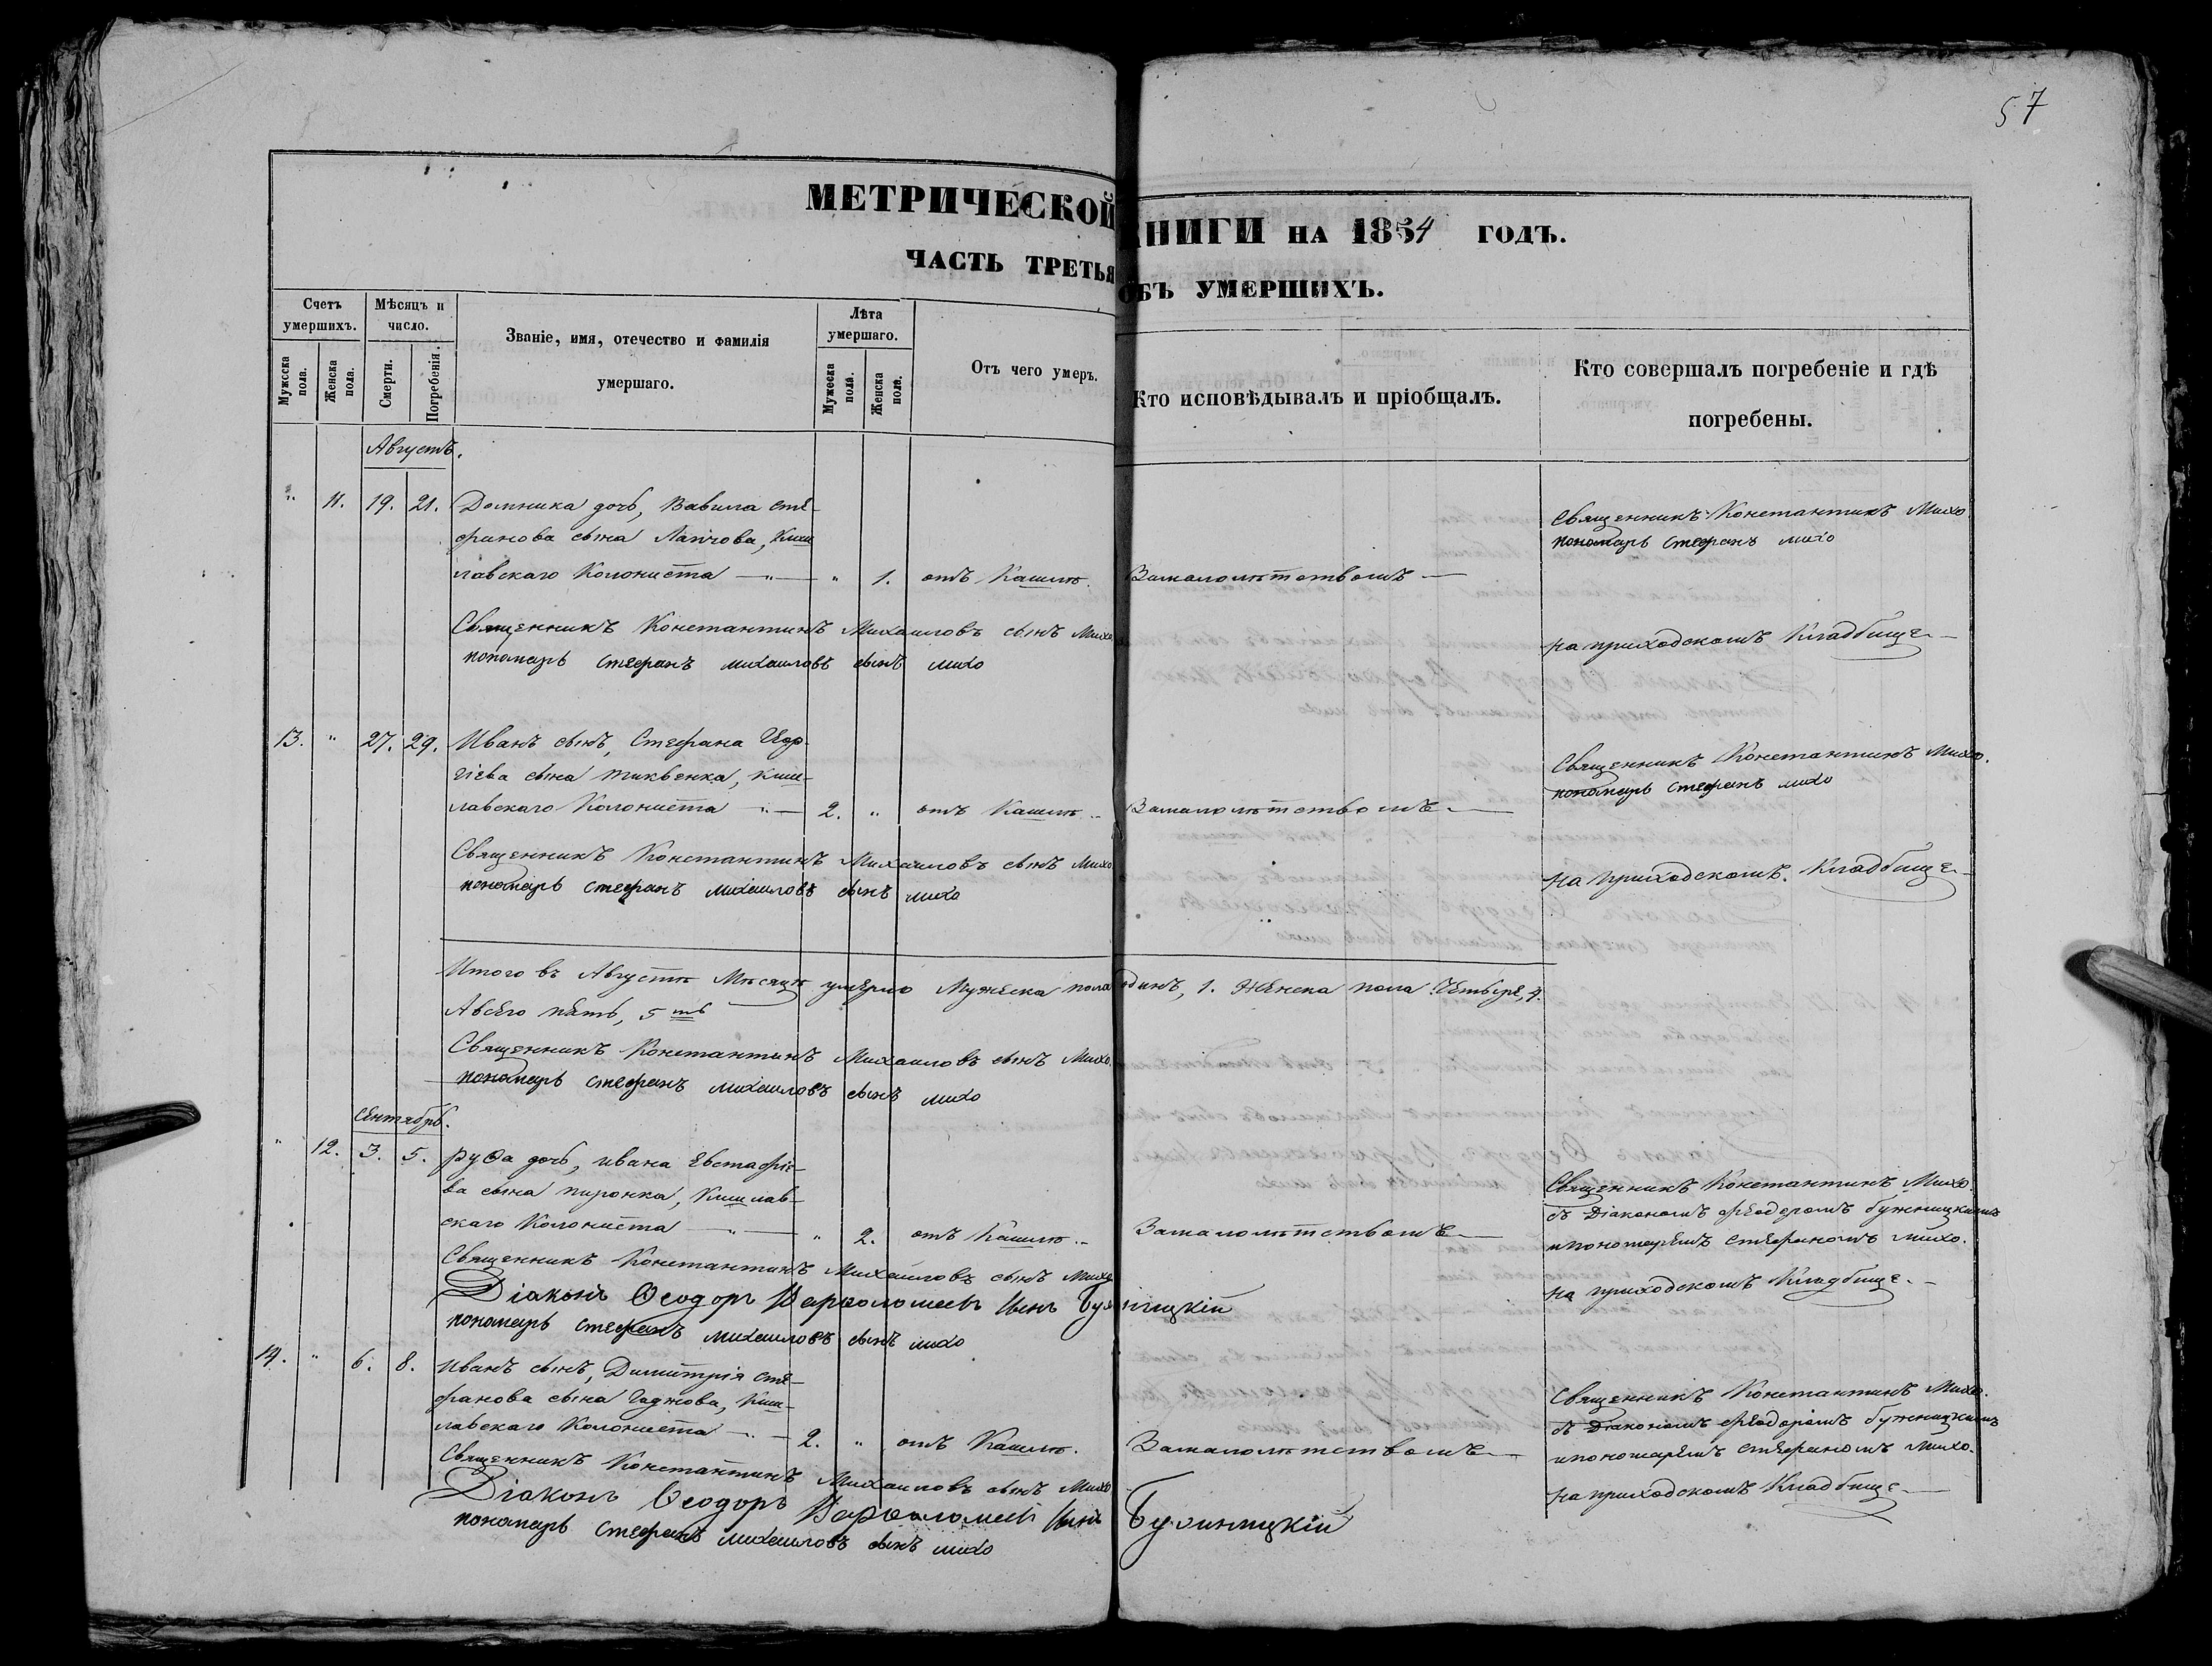 57
МЕТРИЧЕСКОЙ КНИГИ НА 1854 ГОДЪ.
ЧАСТЬ ТРЕТЬЯ ОБЪ УМЕРШИХЪ.
Счетъ умершихъ.
Мужеска пола.
Женска пола.
Мѣсяцъ и число.
Смерти.
Погребенія.
Званіе, имя, отечество и фамилія
умершаго.
Лѣта умершаго.
Мужеска пола.
Женска пола.
Отъ чего умеръ.
Кто исповѣдывалъ и пріобщалъ.
Кто совершалъ погребеніе и гдѣ
погребены.
Августъ.
" 11. 19. 21. Домника дочь, Вавила Сте-
фанова сына Лапчова, Киш-
лавскаго Колониста — " — " 1. отъ Кашля. Замалолѣтствомъ —
Священникъ Константинъ Михо.
пономарь Стефанъ михо
на приходскомъ Кладбище —
Священникъ Константинъ Михаиловъ сынъ Михо
пономарь Стефанъ михаиловъ сынъ михо
13. " 27. 29. Иванъ сынъ, Стефана Геор-
гіева сына Тиквенка, Киш-
лавскаго Колониста " — 2. " отъ Кашля. Замалолѣтствомъ —
Священникъ Константинъ Михо.
пономарь Стефанъ михо
на приходскомъ Кладбище —
Священникъ Константинъ Михаиловъ сынъ Михо
пономарь Стефанъ михаиловъ сынъ михо
Итого въ Августѣ Мѣсяцѣ умерло Мужеска пола одинъ, 1. Женска пола Четыре, 4.
Авсего пять, 5 ть
Священникъ Константинъ Михаиловъ сынъ Михо.
пономарь Стефанъ михаиловъ сынъ михо
Сентябрь.
" 12. 3. 5. Руѳа дочь, Ивана Евстафіе-
ва сына пиронка, Кишлав-
скаго Колониста — " — " 2. отъ Кашля. Замалолѣтствомъ —
Священникъ Константинъ Михо.
съ Діакономъ Феодоромъ
ипономаремъ Стефаномъ михо.
на приходскомъ Кладбище. —
Священникъ Константинъ Михаиловъ сынъ Михо
Діаконъ Ѳеодоръ Варѳоломеевъ сынъ
пономарь Стефанъ михаиловъ сынъ михо
14. " 6. 8. Иванъ сынъ, Димитрія Сте-
фанова сына Гаджова, Киш-
лавскаго Колониста — " — 2. " отъ Кашля. Замалолѣтствомъ —
Священникъ Константинъ Михо.
съ Діакономъ Феодоромъ
ипономаремъ Стефаномъ михо.
на приходскомъ Кладбище —
Священникъ Константинъ Михаиловъ сынъ Михо
Діаконъ Ѳеодоръ Варѳоломеевъ сынъ
пономарь Стефанъ михаиловъ сынъ михо